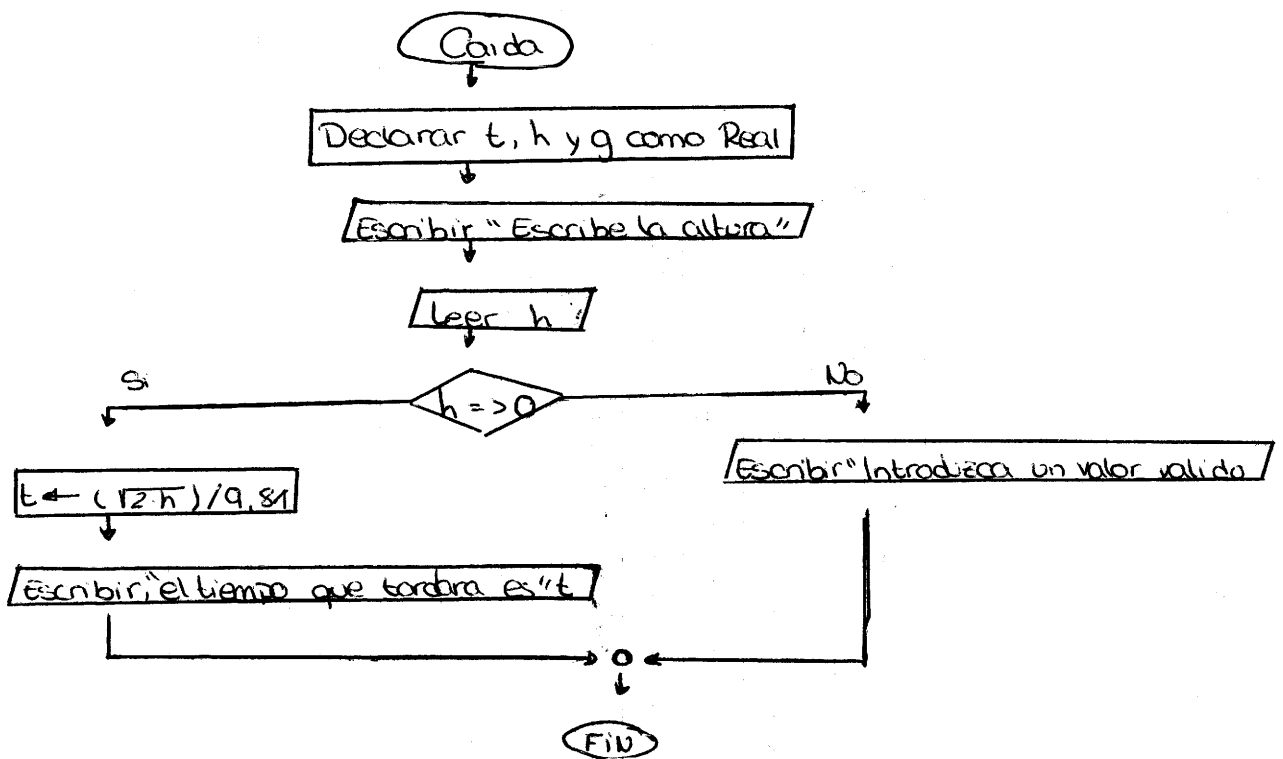 Caida
Declarar t, h y g como Real
Escribir "Escribe la altura"
Leer h
Si
No
h = > 0
t ← (√2·h)/9,81
Escribir "Introduzca un valor valido
Escribir, "el tiempo que tardara es" t
FIN